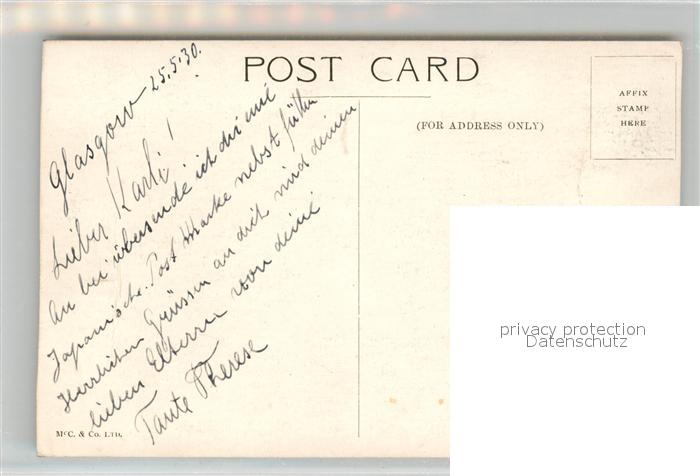 POST CARD
(FOR ADDRESS ONLY)
AFFIX
STAMP
HERE
Glasgow 25.5.30.
Lieber Karli!
An bei übersende ich dir eine
Japanische Post Marke nebst
Herzlichen Grüssen an dich und deinen
lieben Eltern von deine
Tante Therese
McC. & Co. LTD.
privacy protection
Datenschutz